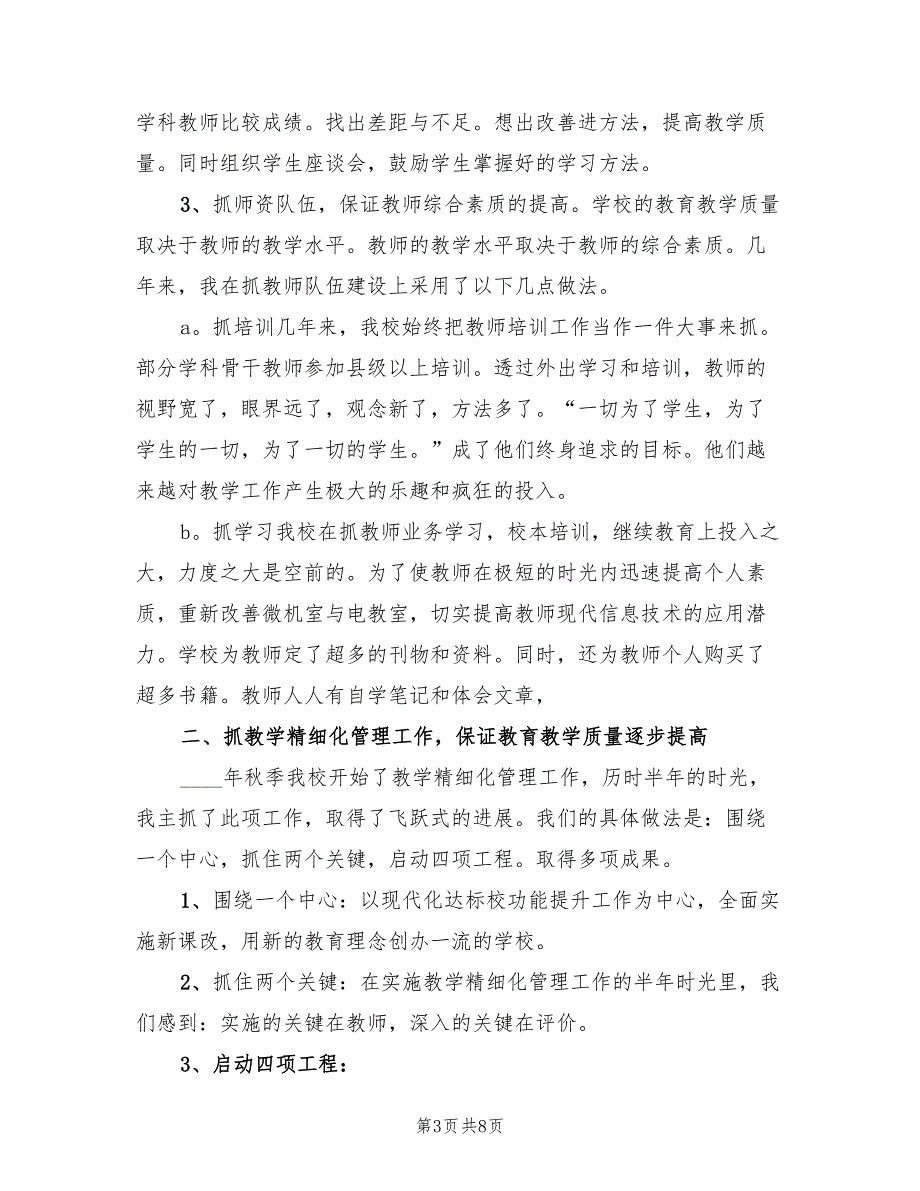 学科教师比较成绩。找出差距与不足。想出改善进方法，提高教学质
量。同时组织学生座谈会，鼓励学生掌握好的学习方法。
3、抓师资队伍，保证教师综合素质的提高。学校的教育教学质量
取决于教师的教学水平。教师的教学水平取决于教师的综合素质。几
年来，我在抓教师队伍建设上采用了以下几点做法。
a。抓培训几年来，我校始终把教师培训工作当作一件大事来抓。
部分学科骨干教师参加县级以上培训。透过外出学习和培训，教师的
视野宽了，眼界远了，观念新了，方法多了。“一切为了学生，为了
学生的一切，为了一切的学生。”成了他们终身追求的目标。他们越
来越对教学工作产生极大的乐趣和疯狂的投入。
b。抓学习我校在抓教师业务学习，校本培训，继续教育上投入之
大，力度之大是空前的。为了使教师在极短的时光内迅速提高个人素
质，重新改善微机室与电教室，切实提高教师现代信息技术的应用潜
力。学校为教师定了超多的刊物和资料。同时，还为教师个人购买了
超多书籍。教师人人有自学笔记和体会文章，
二、抓教学精细化管理工作，保证教育教学质量逐步提高
____年秋季我校开始了教学精细化管理工作，历时半年的时光，
我主抓了此项工作，取得了飞跃式的进展。我们的具体做法是：围绕
一个中心，抓住两个关键，启动四项工程。取得多项成果。
1、围绕一个中心：以现代化达标校功能提升工作为中心，全面实
施新课改，用新的教育理念创办一流的学校。
2、抓住两个关键：在实施教学精细化管理工作的半年时光里，我
们感到：实施的关键在教师，深入的关键在评价。
3、启动四项工程：
第3页 共8页